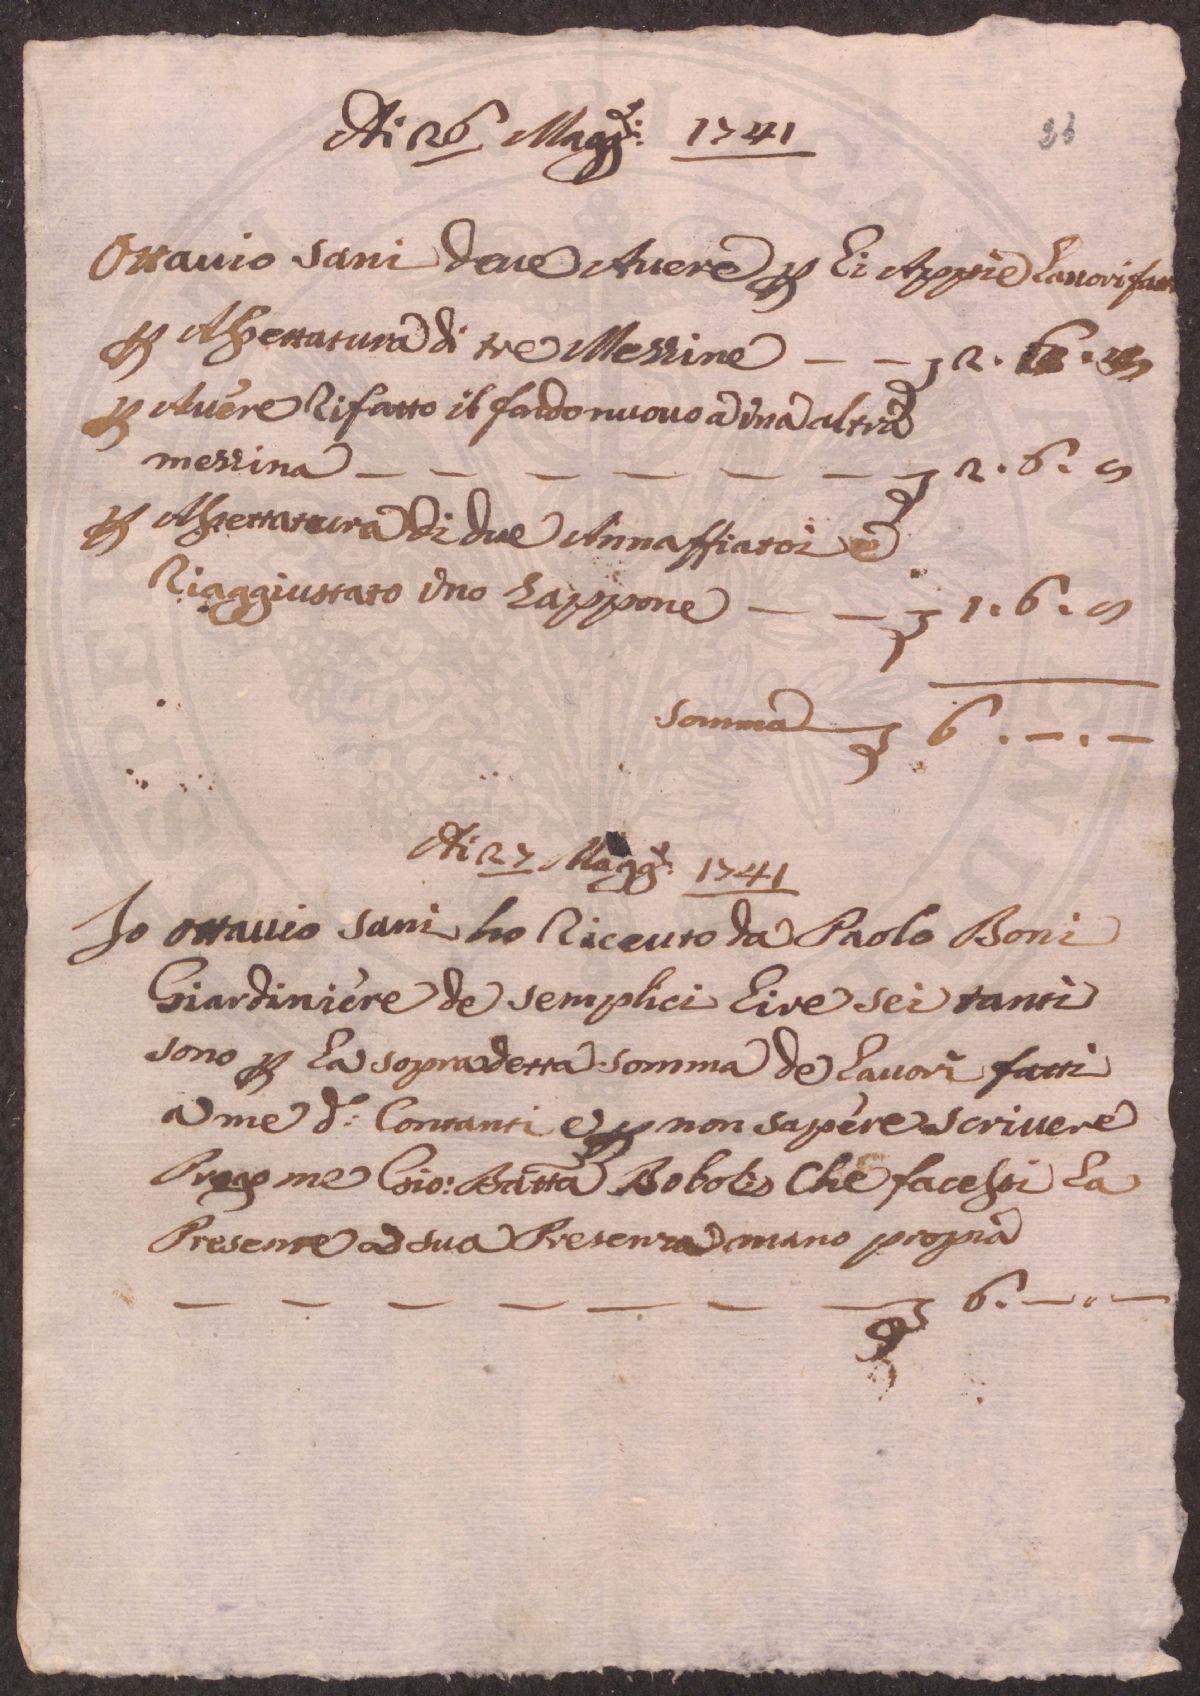 Adi 26 Magg.o: 1741
26
Ottauio Sani deue Auere p Li Appiè Lauori fatti
p Assettatura di tre Mezzine — — 2. 6. 8
p Auere Rifatto il fondo nuouo a Una altra
mezzina — — — — — — — 2. 6. 8
p Assettatura di due Annaffiatoi e
Riaggiustato Uno Zappone — — 1. 6. 8
Somma — 6. —. —
Adi 27 Magg.o: 1741
Io Ottauio Sani ho Riceuto da Paolo Boni
Giardiniere de Semplici Lire sei tanti
sono p La sopradetta somma de Lauori fatti
a me d.i: Contanti e p non sapere scriuere
Pregò me Gio: Batta Boboli Che facessi La
Presente a sua Presenza mano propia
— — — — — — — 6. —. —